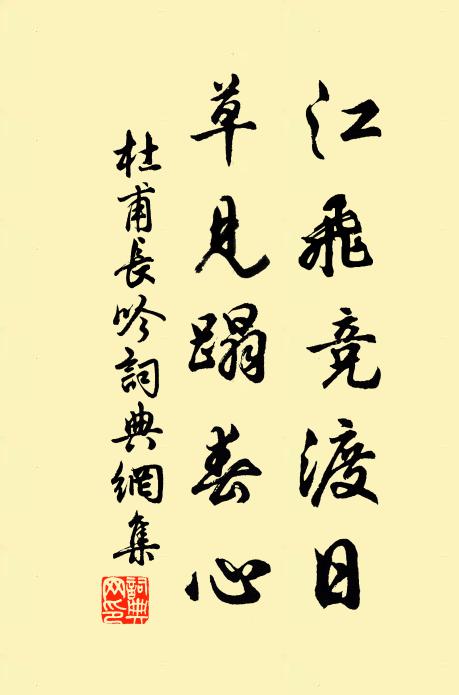 江飛竞渡日
草見蹋春心
杜甫長吟詞典網集
詞典網印